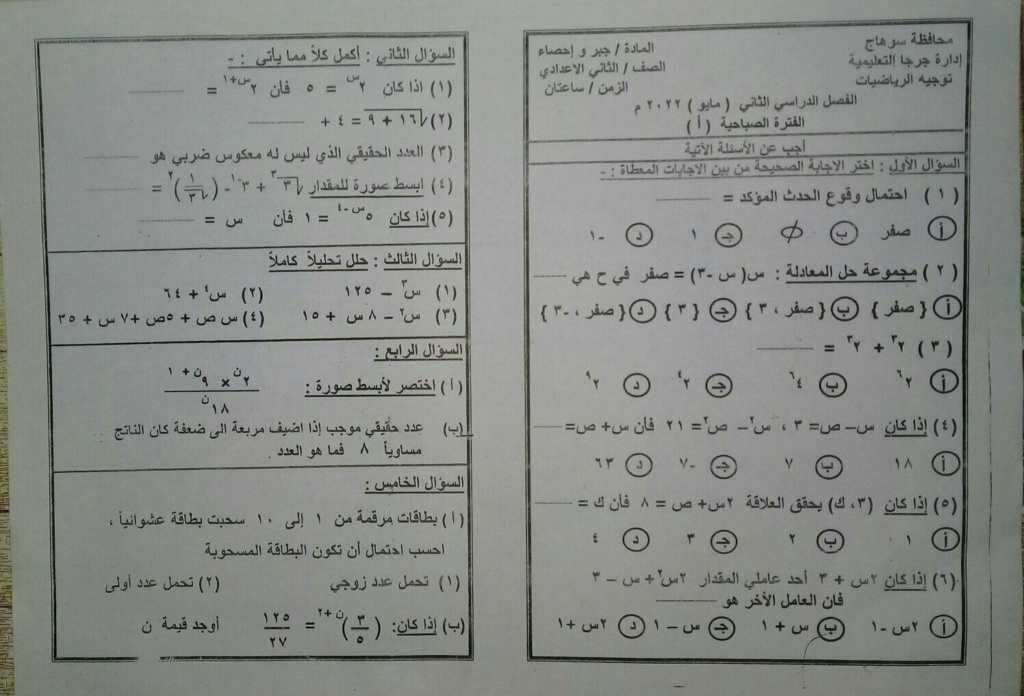 محافظة سوهاج
إدارة جرجا التعليمية
توجيه الرياضيات
المادة / جبر و إحصاء
الصف / الثاني الاعدادي
الزمن / ساعتان
الفصل الدراسي الثاني ( مايو ) ٢٠٢٢ م
الفترة الصباحية ( أ )
أجب عن الأسئلة الآتية
السؤال الأول : إختر الاجابة الصحيحة من بين الاجابات المعطاة : -
( ١ ) احتمال وقوع الحدث المؤكد = ............
أ صفر ب ∅ جـ ١ د -١
( ٢ ) مجموعة حل المعادلة : س( س -٣) = صفر في ح هي ............
أ { صفر } ب { صفر ، ٣ } جـ { ٣ } د { صفر ، -٣ }
( ٣ ) ٢^٣ + ٢^٣ = ............
أ ٢^٦ ب ٤^٦ جـ ٢^٤ د ٢^٩
(٤) إذا كان س– ص= ٣ ، س^٢– ص^٢= ٢١ فأن س+ ص= ............
أ ١٨ ب ٧ جـ -٧ د ٦٣
(٥) إذا كان (٣، ك) يحقق العلاقة ٢س+ ص = ٨ فأن ك = ............
أ ١ ب ٢ جـ ٣ د ٤
(٦) إذا كان ٢س + ٣ أحد عاملي المقدار ٢س^٢+ س – ٣
فان العامل الأخر هو ............
أ ٢س -١ ب س + ١ جـ س – ١ د ٢س +١
السؤال الثاني : أكمل كلاً مما يأتي : -
(١) اذا كان ٢^س = ٥ فأن ٢^س+١ = ............
(٢) √١٦ + ٩ = ٤ + ............
(٣) العدد الحقيقي الذي ليس له معكوس ضربي هو ............
(٤) ابسط صورة للمقدار √٣^٣ + ٣^-١ - (١/√٣)^٢ = ............
(٥) إذا كان ٥^س -٤ = ١ فأن س = ............
السؤال الثالث : حلل تحليلاً كاملاً
(١) س^٣ – ١٢٥ (٢) س^٤ + ٦٤
(٣) س^٢ – ٨ س + ١٥ (٤) س ص + ٥ص +٧ س + ٣٥
السؤال الرابع :
(أ) اختصر لأبسط صورة : ٢^ن × ٩^ن + ١ / ١٨^ن
(ب) عدد حقيقي موجب إذا اضيف مربعة الى ضعفة كان الناتج
مساوياً ٨ فما هو العدد .
السؤال الخامس :
(أ) بطاقات مرقمة من ١ إلى ١٠ سحبت بطاقة عشوائياً ،
احسب احتمال أن تكون البطاقة المسحوبة
(١) تحمل عدد زوجي (٢) تحمل عدد أولى
(ب) إذا كان: (٣/٥)^ن +٢ = ١٢٥/٢٧ أوجد قيمة ن